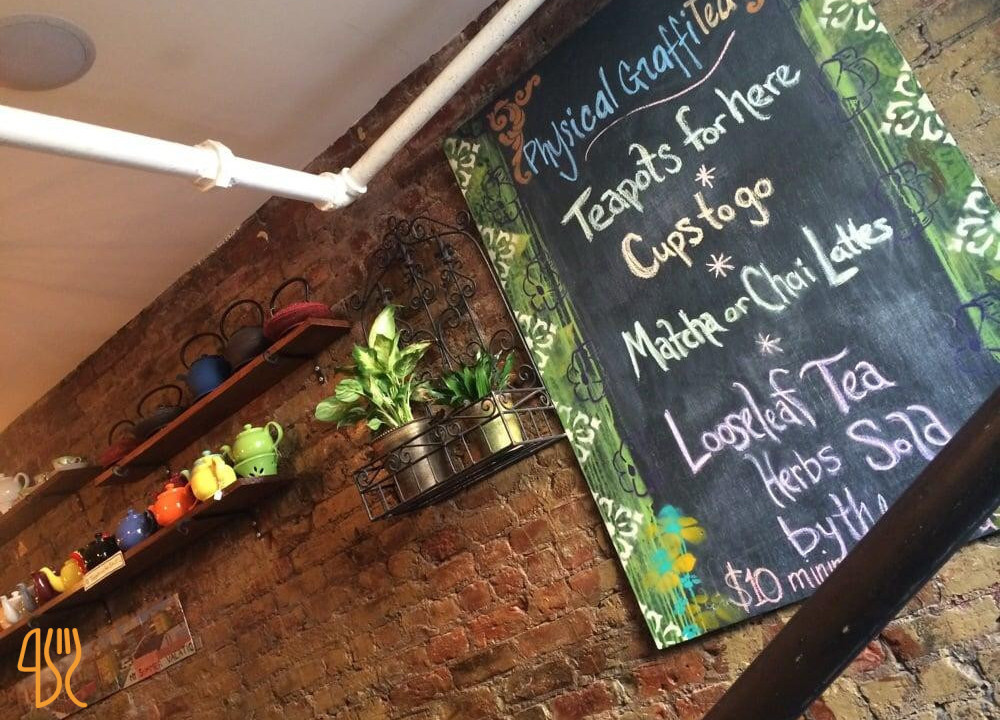 Physical GraffiTea
Teapots for here
*
Cups to go
*
Matcha or Chai Lattes
*
Looseleaf Tea
Herbs Sold
by th
$10 minim